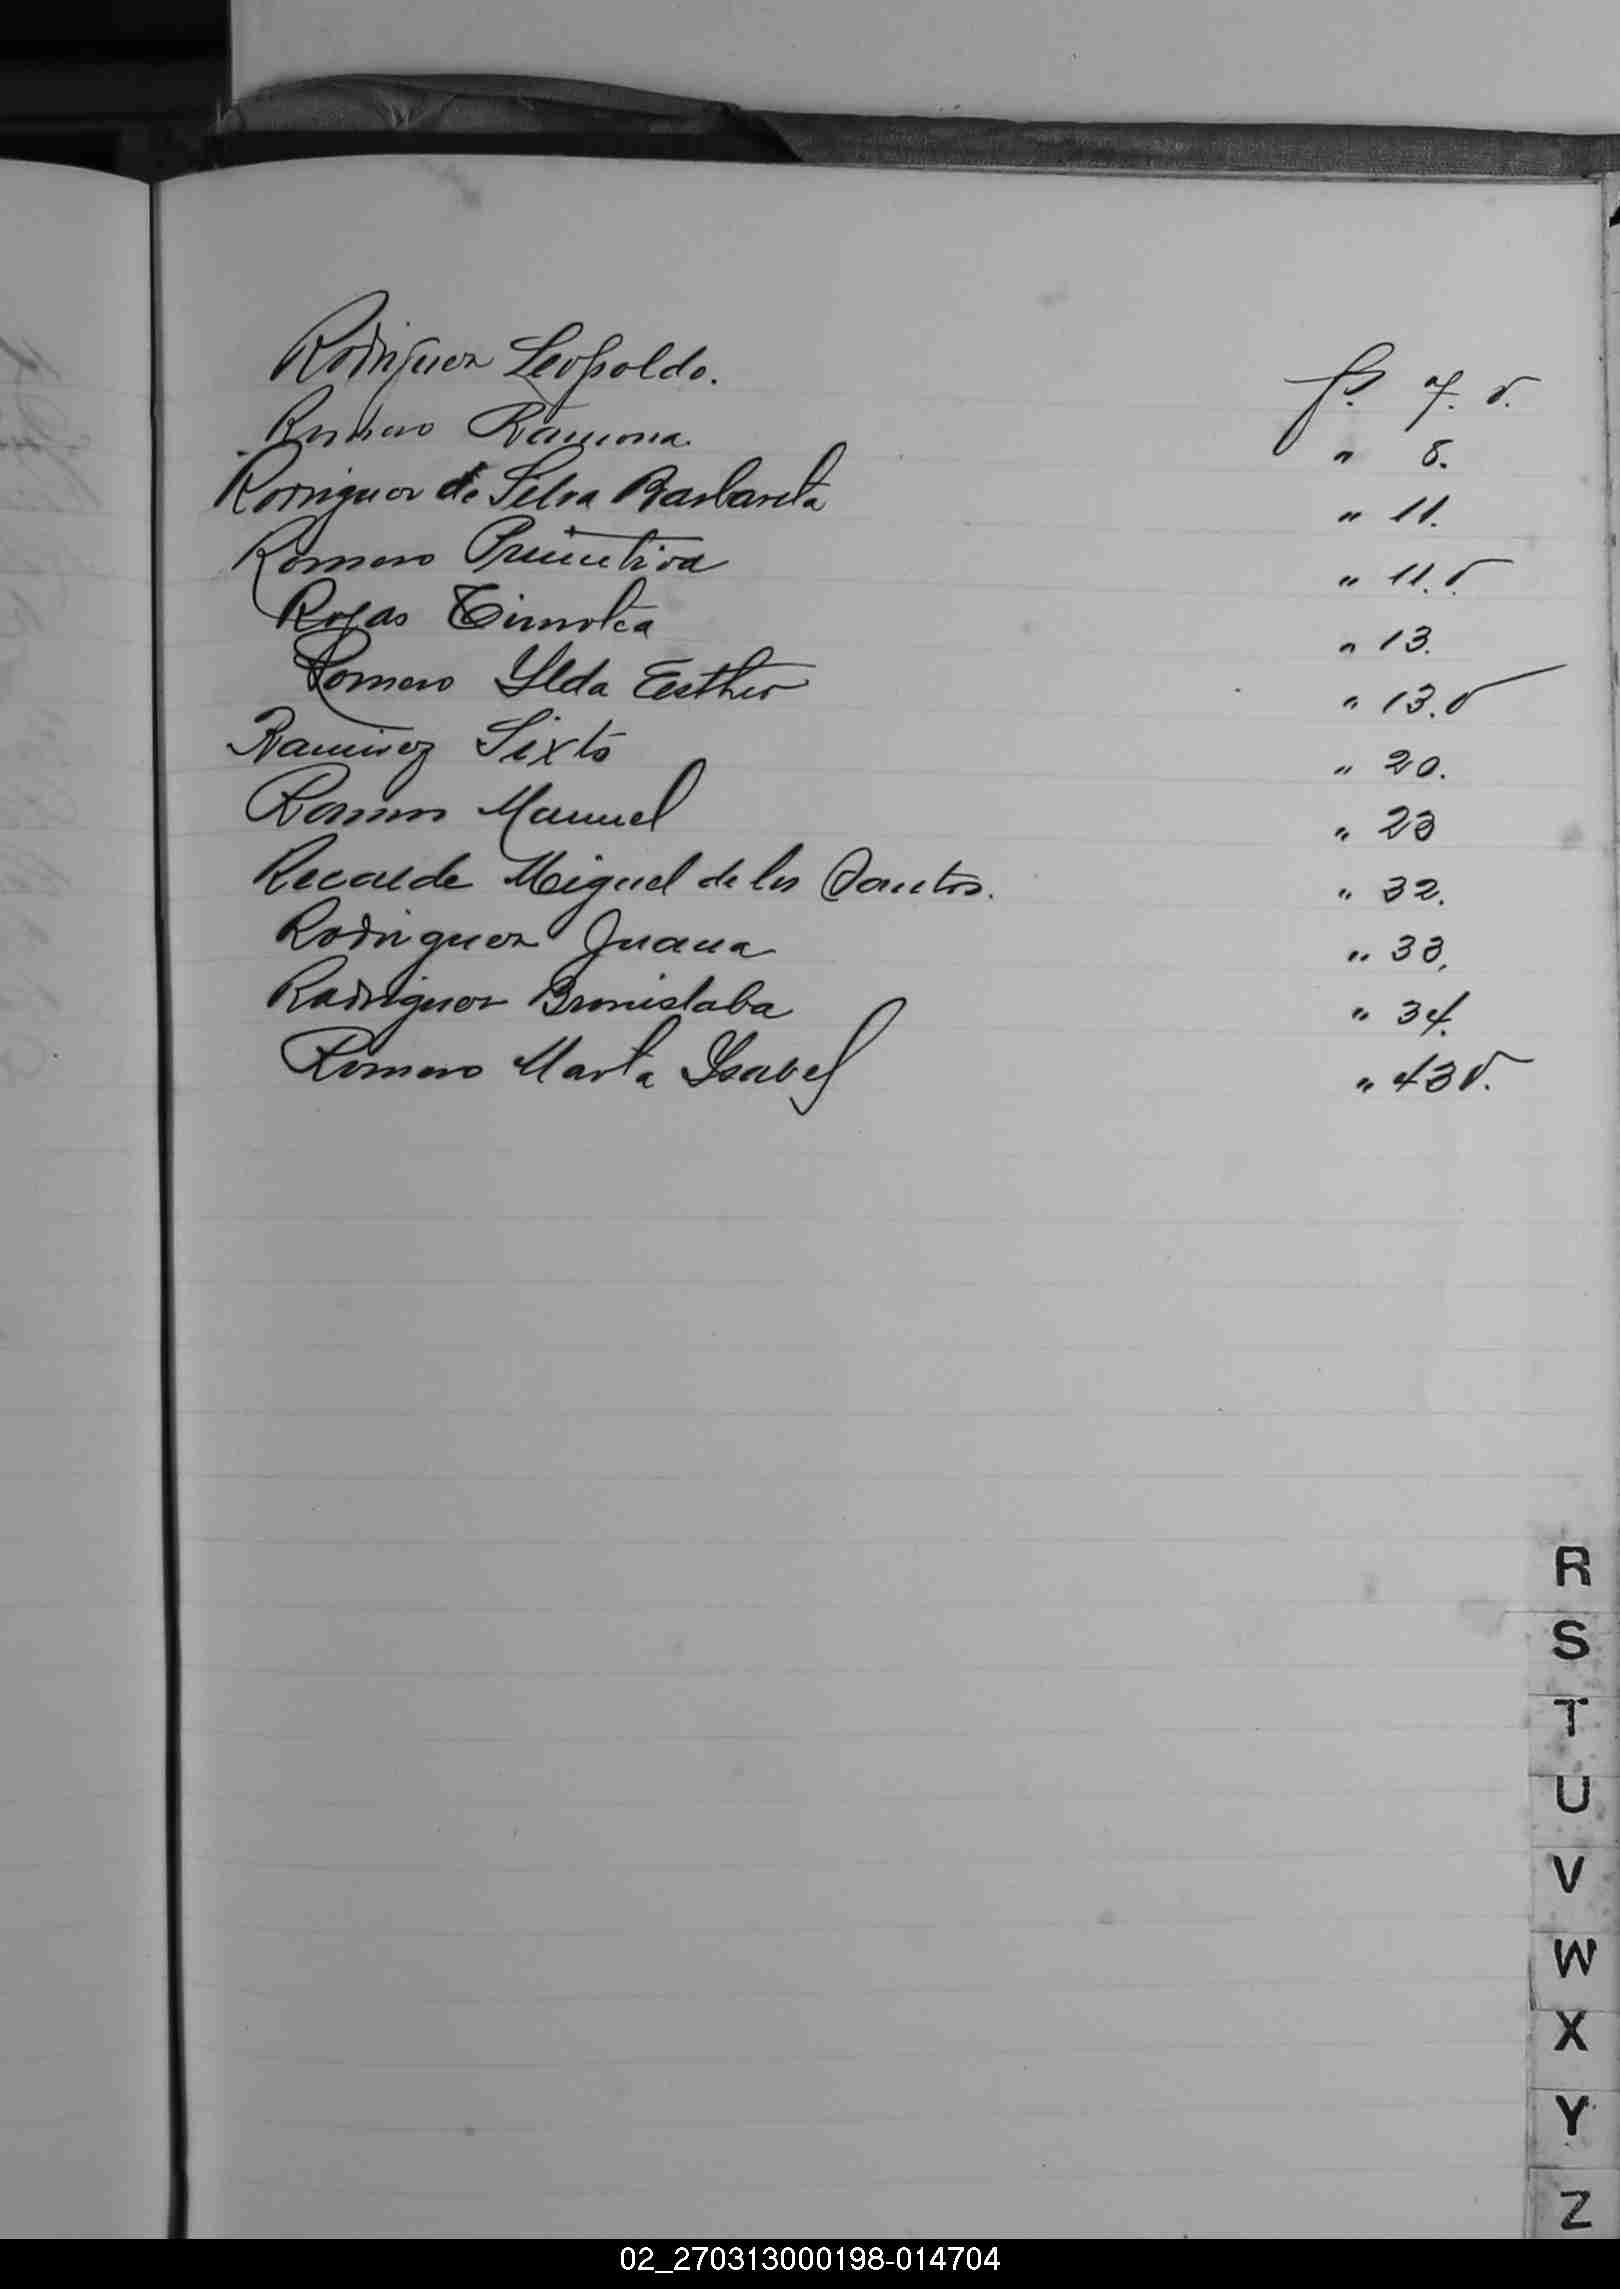 Rodriguez Leopoldo. fs. 7. v.
Romero Ramona. " 8.
Rodriguez de Silva Barbarita " 11.
Romero Primitiva " 11. v.
Rojas Timotea " 13.
Romero Ylda Esther " 13. v
Ramirez Sixto " 20.
Ramos Manuel " 23
Recalde Miguel de los Santos. " 32.
Rodriguez Juana " 33.
Rodriguez Bronislaba " 34.
Romero Marta Ysabel " 43 v.
R
S
T
U
V
W
X
Y
Z
02_270313000198-014704